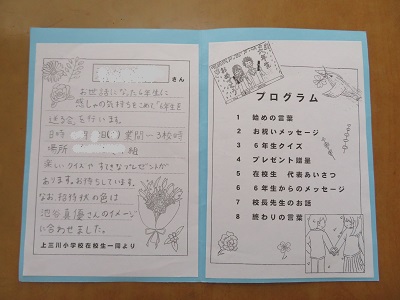 さん
お世話になった6年生に
感しゃの気持ちをこめて「6年生を
送る会」を行います。
日時 月 日( ) 業間〜3校時
場所 組
楽しいクイズやすてきなプレゼントが
あります。お待ちしています。
なお、招待状の色は
池 真優さんのイメージ
に合わせました。
上三川小学校在校生一同より
プログラム
1 始めの言葉
2 お祝いメッセージ
3 6年生クイズ
4 プレゼント贈呈
5 在校生 代表あいさつ
6 6年生からのメッセージ
7 校長先生のお話
8 終わりの言葉